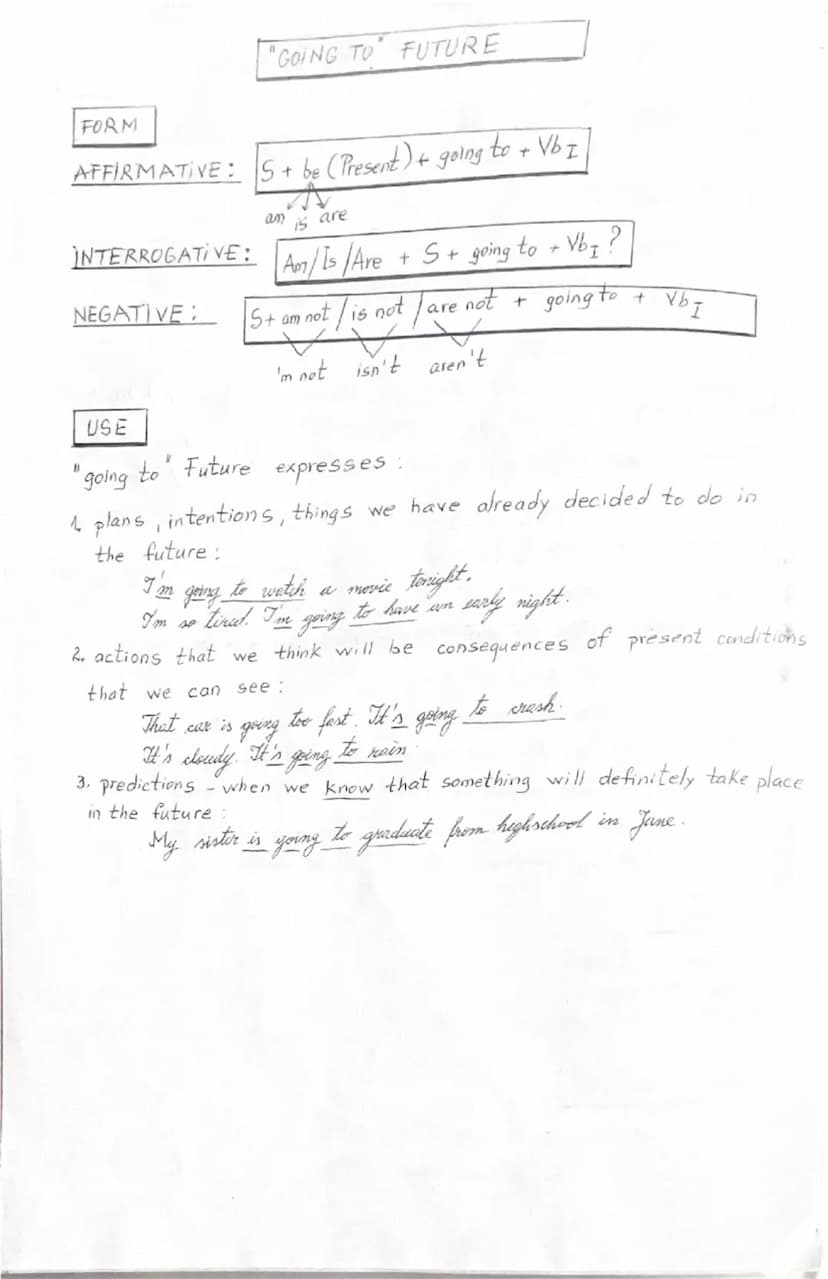 "GOING TO" FUTURE
FORM
AFFIRMATIVE: S + be (Present) + going to + Vb I
am is are
INTERROGATIVE: Am/Is/Are + S + going to + Vb I ?
NEGATIVE: S + am not / is not / are not + going to + Vb I
'm not isn't aren't
USE
"going to" Future expresses:
1. plans, intentions, things we have already decided to do in
the future:
I'm going to watch a movie tonight.
I'm so tired. I'm going to have an early night.
2. actions that we think will be consequences of present conditions
that we can see:
That car is going too fast. It's going to crash.
It's cloudy. It's going to rain.
3. predictions - when we know that something will definitely take place
in the future:
My sister is going to graduate from highschool in June.